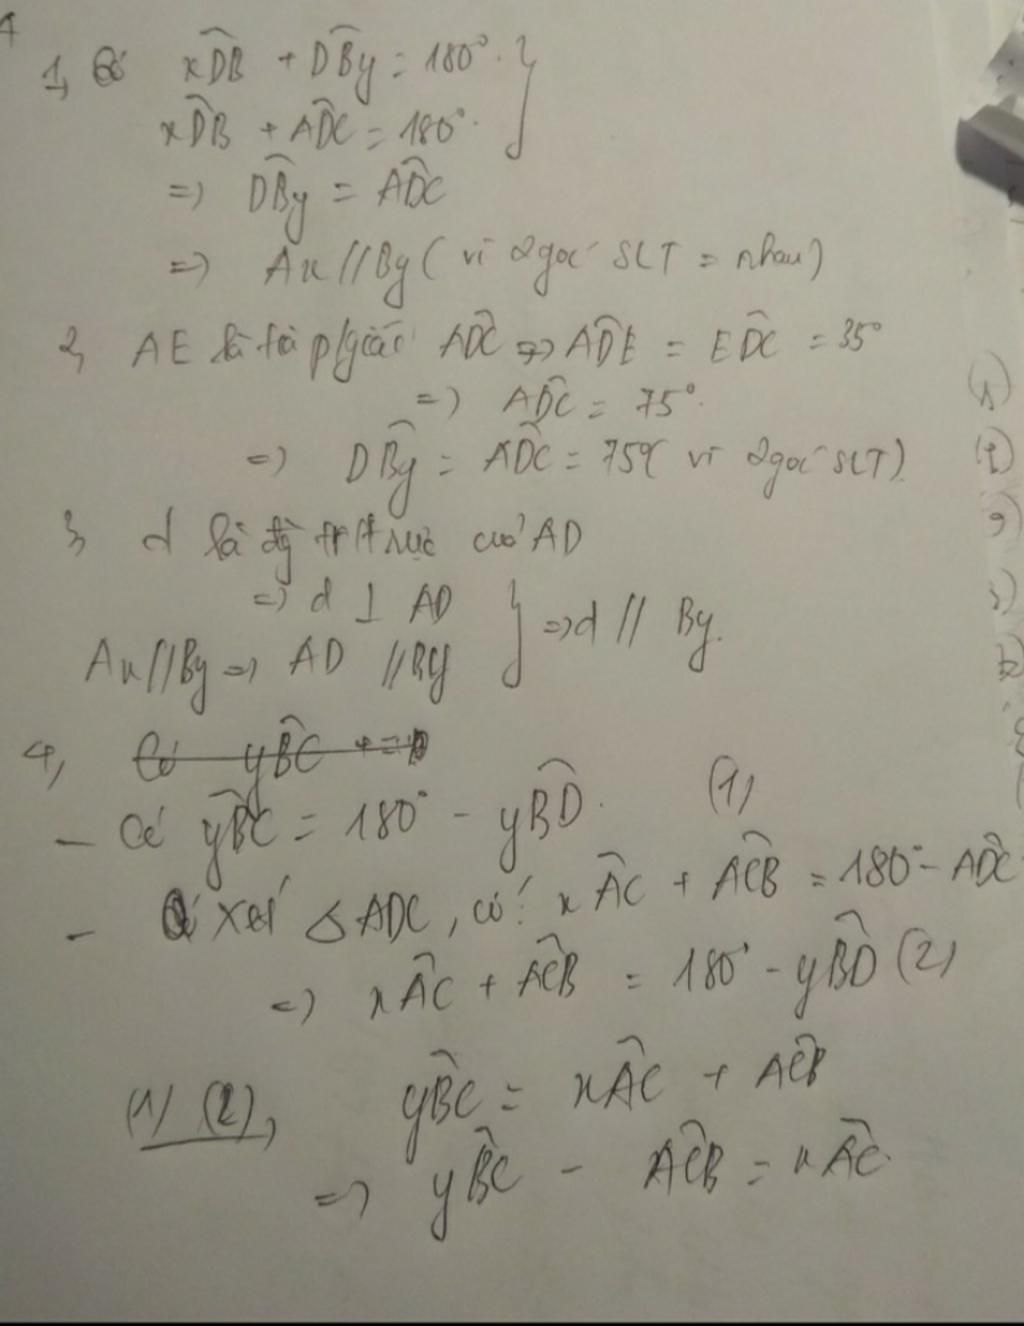 1, Có xDB + DBy = 180°. }
xDB + ADC = 180°.
=> DBy = ADC
=> Ax // By ( vì 2 góc SLT = nhau)
2, AE là tia p/giác ADC => ADE = EDC = 35°
=> ADC = 75°.
=> DBy = ADC = 75° ( vì 2 góc SLT)
3 d là đg trực cuả AD
=> d ⊥ AD } => d // By.
Ax // By => AD // By
4, Có yBC
- Có yBC = 180° - yBD. (1)
- Xét △ ADC, có: xAC + ACB = 180° - ADC
=> xAC + ACB = 180° - yBD (2)
(1) (2), yBC = xAC + ACB
=> yBC - ACB = xAC.